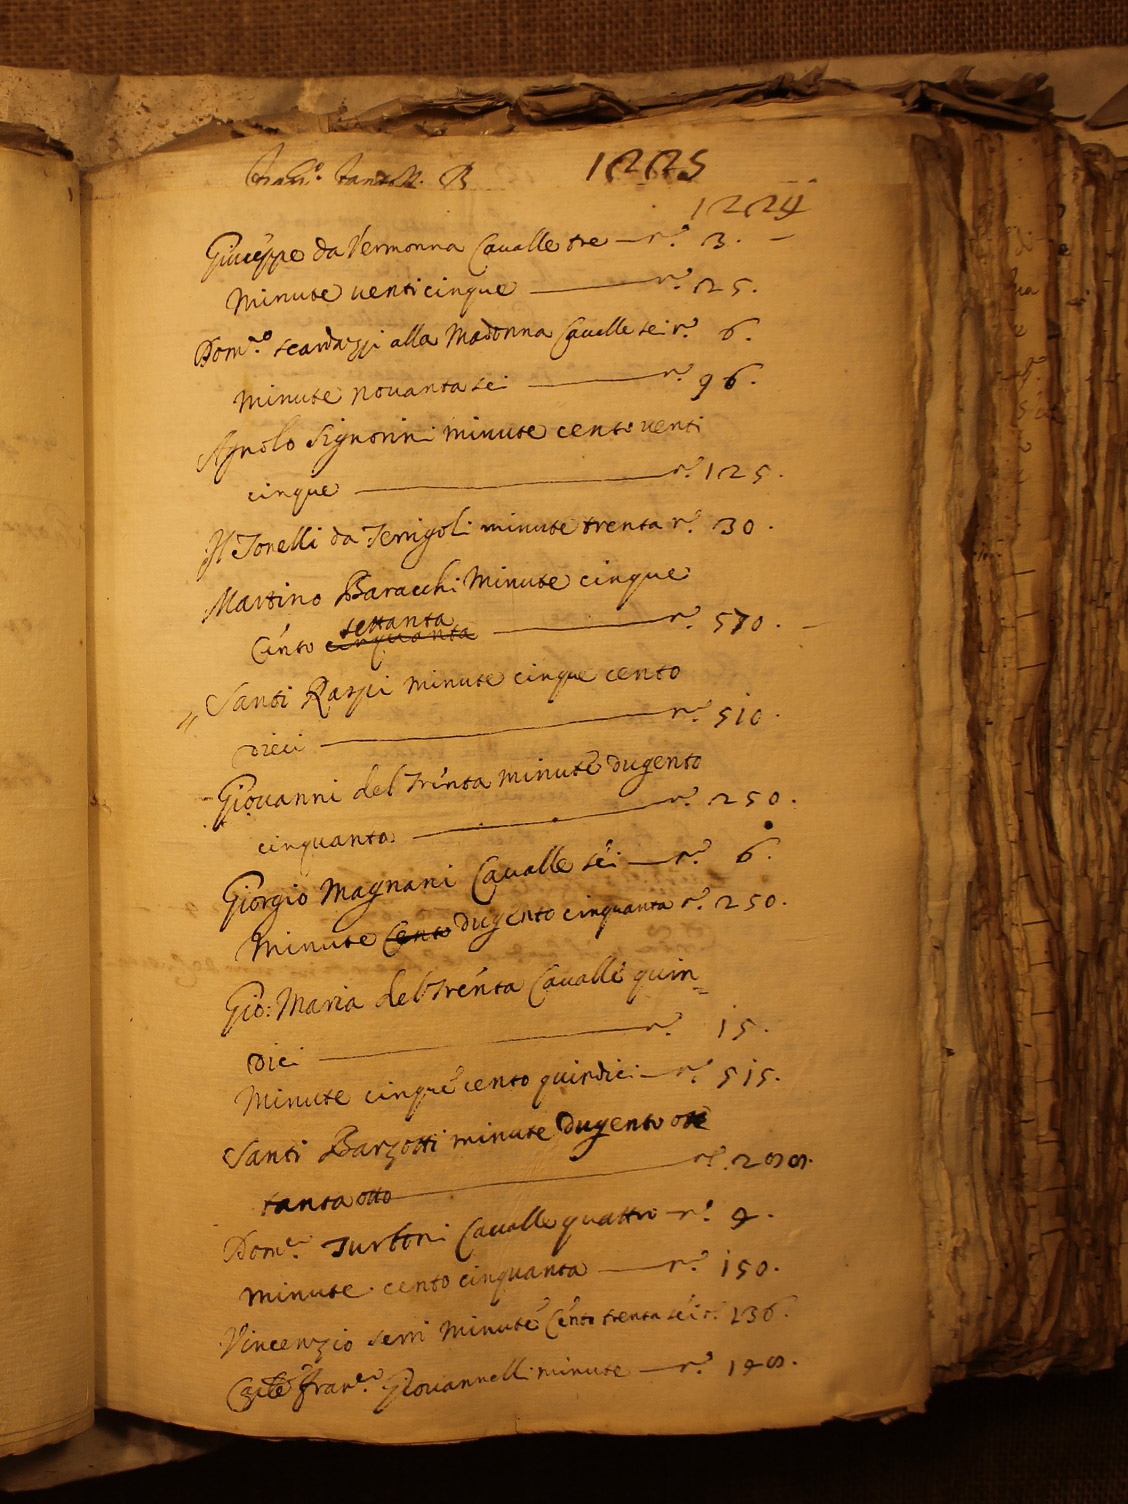 1225
1224
Giuseppe da Vermonna Cavalle tre — n.º 3. —
Minute venticinque — n.º 25.
Dom.co scardazzi alla Madonna Cavalle sei n.º 6.
Minute novanta sei — n.º 96.
Agnolo Signorini minute cento venti
cinque — n.º 125.
Il Tonelli da Terrigoli minute trenta n.º 30.
Martino Baracchi Minute cinque
settanta
Cento cinquanta — n.º 570. —
Santi Raspi minute cinque cento
dieci — n.º 510.
Giovanni del Trenta minute dugento
cinquanta — n.º 250.
Giorgio Magnani Cavalle sei — n.º 6.
Minute Cento dugento cinquanta n.º 250.
Gio: Maria del Trenta Cavalle quin=
dici — n.º 15.
Minute cinque cento quindici — n.º 515.
Santi Barzotti minute dugento ott
tanta otto — n.º 288.
Dom.co Turboni Cavalle quattro — n.º 4.
minute cento cinquanta — n.º 150.
Vincenzio serri Minute Cento trenta sei n.º 136.
Fran.co Giovannelli minute — n.º 148.